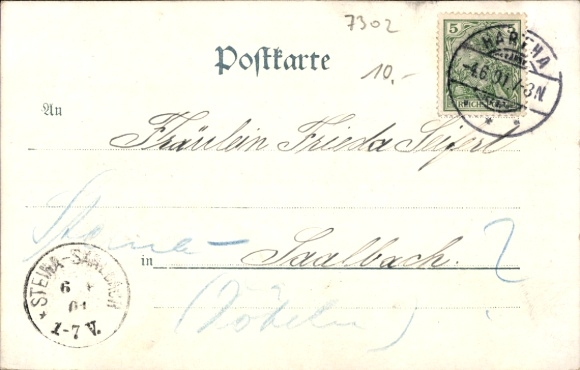 7302
5 5
HARTHA
Postkarte
-4.6.01.7-8N.
10.-
REICHSPOST
An
Fräulein Frieda Seifert
Steina-
in Saalbach. ?
STEINA-SAALBACH
6
01
1-7 V.
(Döbeln)